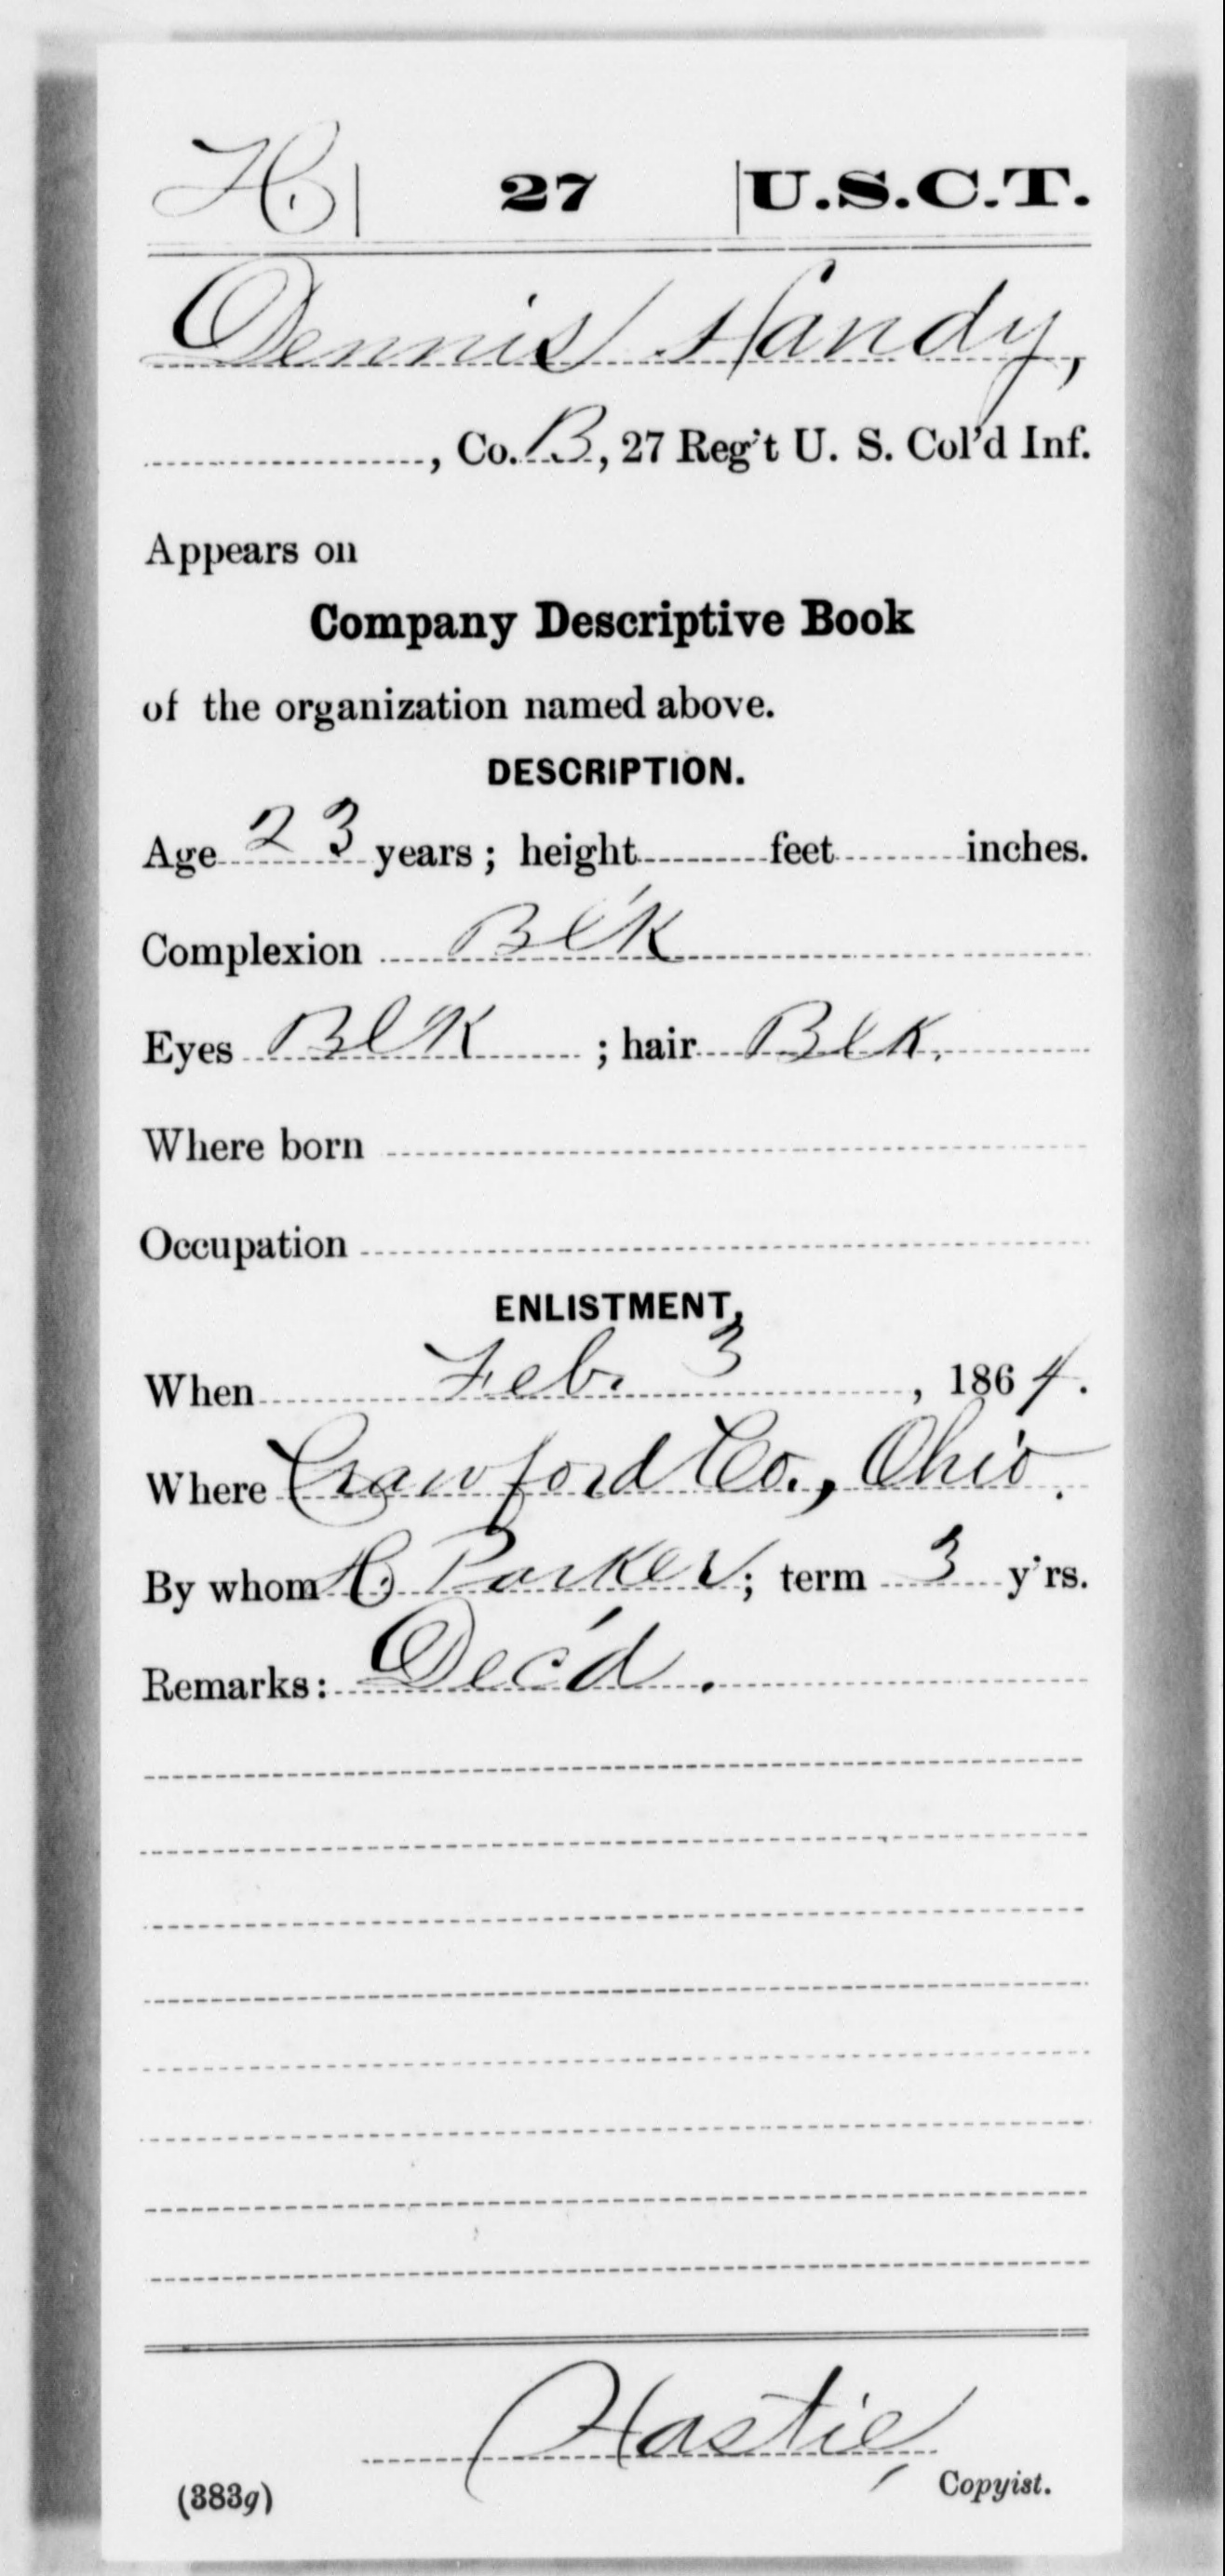 H | 27 | U.S.C.T.
Dennis Handy,
, Co. B, 27 Reg't U. S. Col'd Inf.
Appears on
Company Descriptive Book
of the organization named above.
DESCRIPTION.
Age 23 years; height feet inches.
Complexion Bl'k
Eyes Blk ; hair Blk.
Where born
Occupation
ENLISTMENT.
When Feb. 3, 1864.
Where Crawford Co., Ohio.
By whom C. Parker; term 3 y'rs.
Remarks: Dec'd.
Hastie
(383g) Copyist.